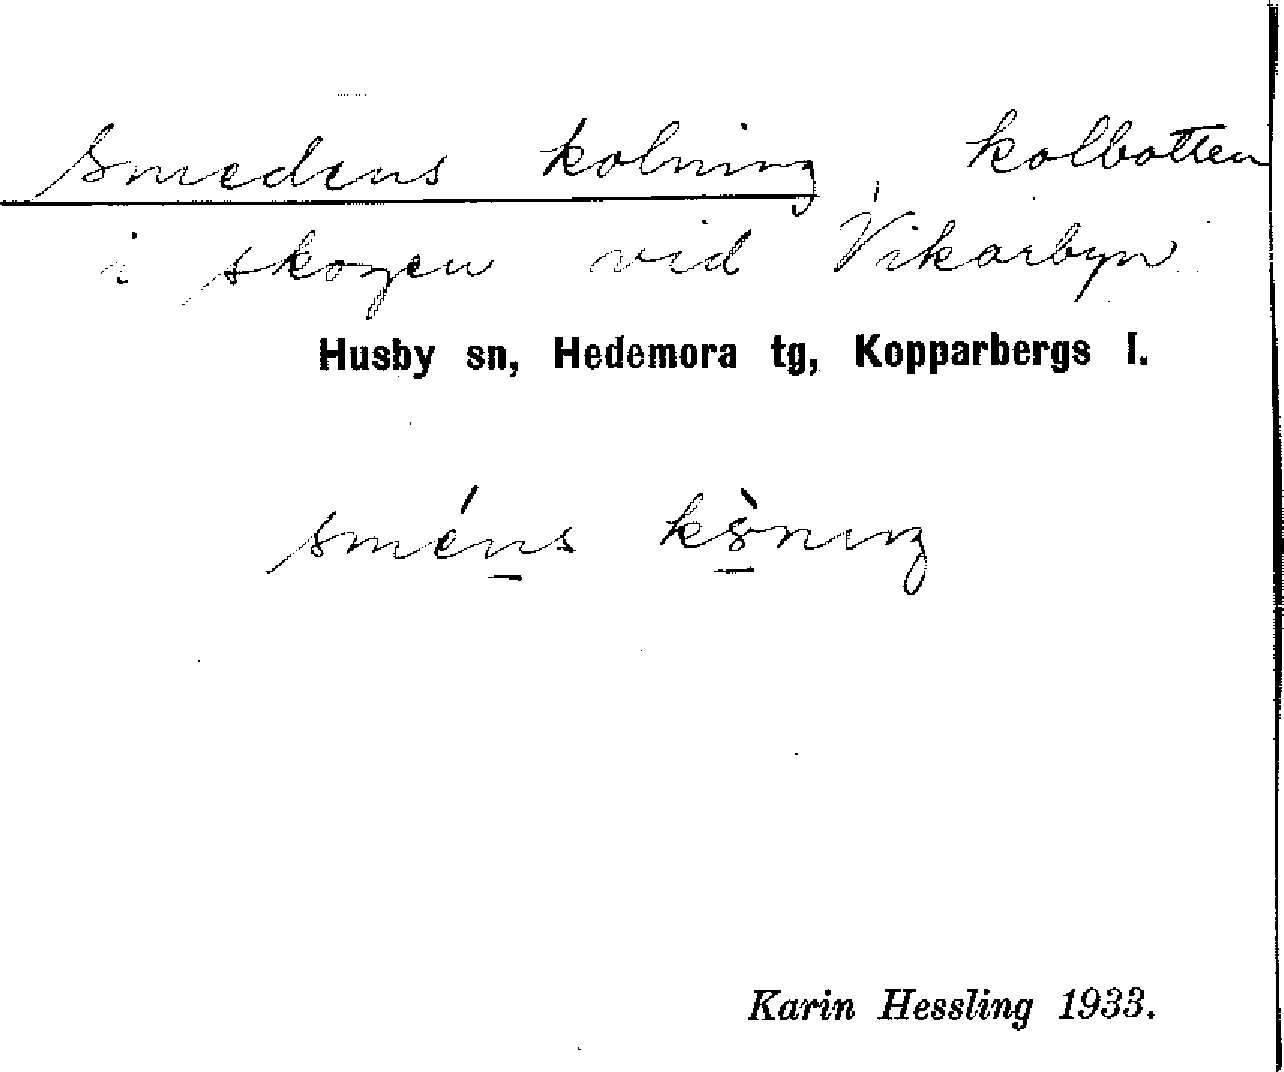 Smedens kolning, kolbotten
i skogen vid Vikarbyn
Husby sn, Hedemora tg, Kopparbergs l.
sméns
Karin Hessling 1933.